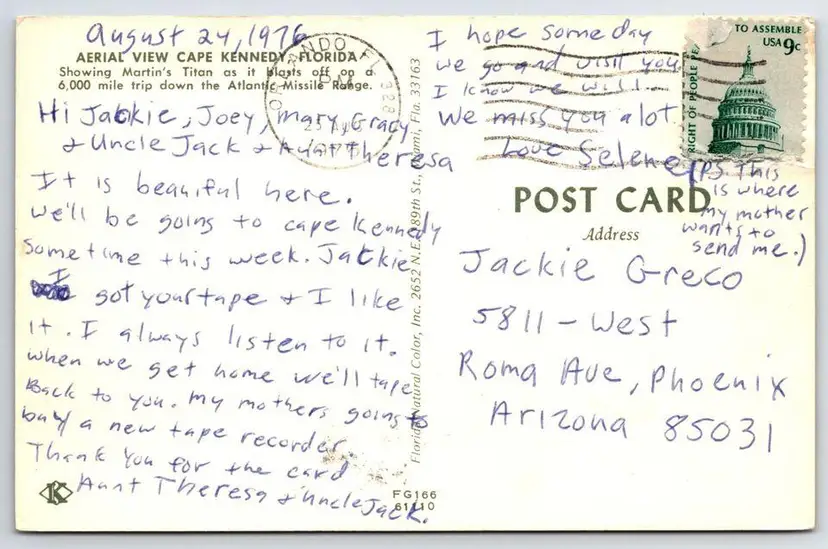 August 24, 1976
AERIAL VIEW CAPE KENNEDY, FLORIDA
Showing Martin's Titan as it blasts off on a
6,000 mile trip down the Atlantic Missile Range.
Hi Jackie, Joey, Mary, Gracy
& Uncle Jack & Aunt Theresa
It is beauiful here.
We'll be going to cape Kennedy
sometime this week. Jackie
I got your tape & I like
it. I always listen to it.
when we get home we'll tape
Back to you. My mothers going to
buy a new tape recorder
Thank you for the card
Aunt Theresa & Uncle Jack.
FG166
61110
Florida Natural Color, Inc. 2652 N.E. 189th St., Miami, Fla. 33163
ORLANDO FL 328
25 AUG
I hope someday
we go and visit you
I know we will...
We miss you alot.
Love Selene
(PS This
is where
my mother
wants to
send me.)
TO ASSEMBLE
USA 9c
RIGHT OF PEOPLE PE
POST CARD
Address
Jackie Greco
5811 - West
Roma Ave, Phoenix
Arizona 85031